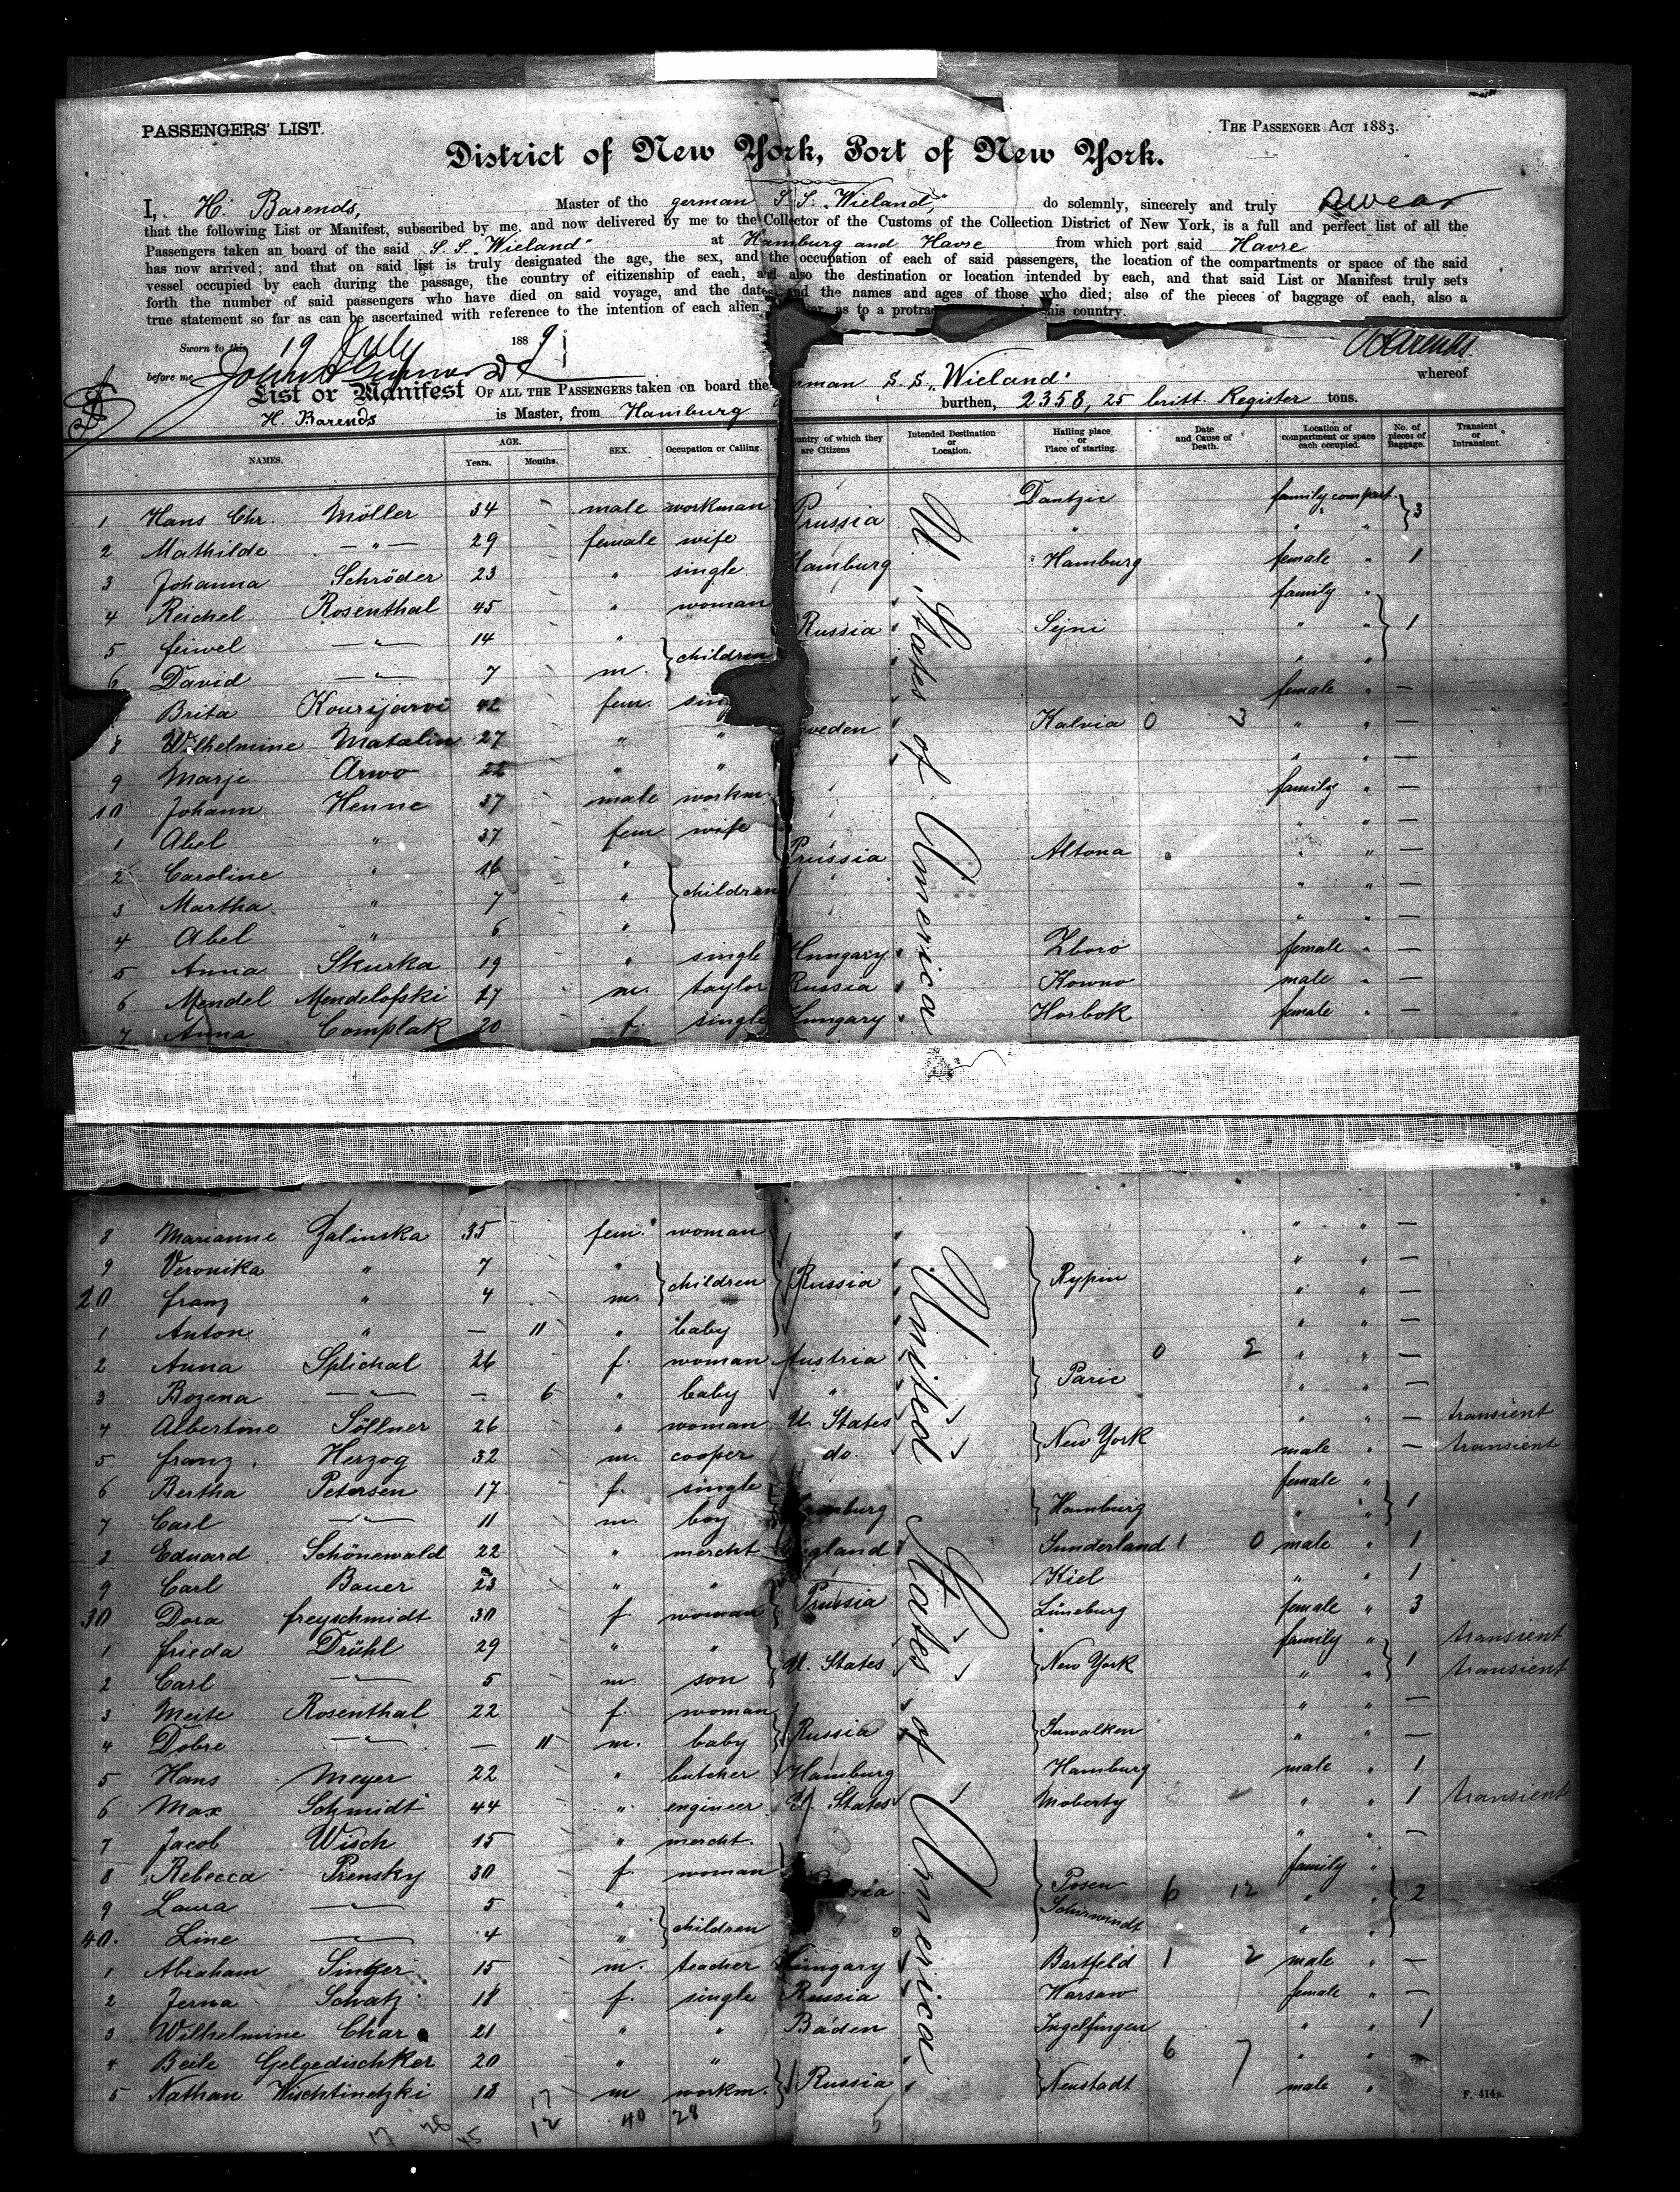 PASSENGERS' LIST.
THE PASSENGER ACT 1883.
District of New York, Port of New York.
I, H. Barends, Master of the german S. S. "Wieland," do solemnly, sincerely and truly swear
that the following List or Manifest, subscribed by me, and now delivered by me to the Collector of the Customs of the Collection District of New York, is a full and perfect list of all the
Passengers taken an board of the said S. S. "Wieland" at Hamburg and Havre from which port said Havre
has now arrived; and that on said list is truly designated the age, the sex, and the occupation of each of said passengers, the location of the compartments or space of the said
vessel occupied by each during the passage, the country of eitizenship of each, and also the destination or location intended by each, and that said List or Manifest truly sets
forth the number of said passengers who have died on said voyage, and the dates and the names and ages of those who died; also of the pieces of baggage of each, also a
true statement so far as can be ascertained with reference to the intention of each alien as to a protrac his country.
Sworn to this 19 July 1889
before me
H Barends.
List or Manifest OF ALL THE PASSENGERS taken on board the german S. S. "Wieland" whereof
H. Barends is Master, from Hamburg burthen, 2358, 25 britt. Register tons.
NAMES. AGE. Years. Months. SEX. Occupation or Calling. untry of which they are Citizens Intended Destination or Location. Hailing place or Place of starting. Date and Cause of Death. Location of compartment or space each occupied. No. of pieces of Baggage. Transient or Intransient.
U. States of America
1 Hans Chr. Möller 34 - male workman Prussia Dantzic family compart. 3
2 Mathilde —"— 29 - female wife " " "
3 Johanna Schröder 23 - " single Hamburg Hamburg female " 1
4 Reichel Rosenthal 45 - " woman family "
5 feiwel —"— 14 - " children Russia Sejni " " 1
6 David —"— 7 - m. " "
Brita Kourijarvi 42 - fem. sin female " —
8 Wilhelmine Matalin 27 - " " weden Kalvia 0 3 " " —
9 Marje Arwo 22 - " " " " —
10 Johann Henne 37 - male workm. family " —
1 Abel " 37 - fem wife " " —
2 Caroline " 16 - " Prussia Altona " " —
3 Martha " 7 - " children " " —
4 Abel " 6 - " " " —
5 Anna Skurka 19 - " single Hungary Zboró female " —
6 Mendel Mendelofski 27 - m. taylor Russia Kowno male " —
7 Anna Complak 20 - f. single Hungary Horbok female " —
United States of America
8 Marianne Zalinska 35 - fem. woman " " —
9 Veronika " 7 - " children Russia Rypin " " —
20 franz " 4 - m. " " —
1 Anton " — 11 " baby " " —
2 Anna Splichal 26 - f. woman Austria Paric 0 2 " " —
3 Bozena —"— — 6 " baby " " " —
4 Albertine Söllner 26 - " woman U. States New York " " — transient
5 franz Herzog 32 - m. cooper do. male " — transient
6 Bertha Petersen 17 - f. single female "
7 Carl —"— 11 - m. boy Hamburg Hamburg " " 1
8 Eduard Schönewald 22 - " mercht England Sunderland 1 0 male " 1
9 Carl Bauer 23 - " " Kiel " " 1
30 Dora freyschmidt 30 - f. woman Prussia Lüneburg female " 3
1 frieda Drühl 29 - " " U. States New York family " 1 transient
2 Carl —"— 5 - m. son " " transient
3 Meite Rosenthal 22 - f. woman Russia Suwalken " " —
4 Dobre —"— — 11 m. baby " " —
5 Hans Meyer 22 - " butcher Hamburg Hamburg male " 1
6 Max Schmidt 44 - " engineer U. States Moberty " " 1 transient
7 Jacob Wisch 15 - " mercht. " " —
8 Rebecca Prensky 30 - f. woman family "
9 Laura —"— 5 - " ia Posen 6 12 " " 2
40. Line —"— 4 - " children Schirwindt " "
1 Abraham Sintzer 15 - m. teacher Hungary Bartfeld 1 2 male " —
2 Jerna Schatz 18 - f. single Russia Warsaw female " —
3 Wilhelmine Char 21 - " " Baden Ingelfingen " " 1
4 Beile Gelgedischker 20 - " " 6 7 " " —
5 Nathan Wischtinetzki 18 m workm. Russia Neustadt male "
F. 414p.
17
17 28 45 12 40 28 5